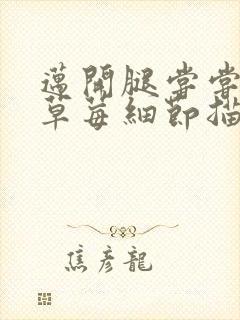 邁開腿嘗嘗
草莓細節描
焦彦龍